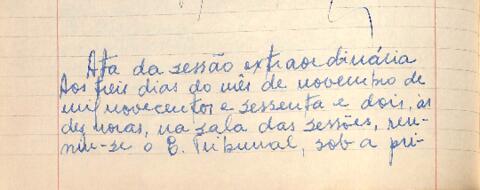 Ata da sessão extraordinária
Aos treis dias do mês de novembro de
mil novecentos e sessenta e dois, às
dez horas, na sala das sessões, reu-
niu-se o E. Tribunal, sob a pri-